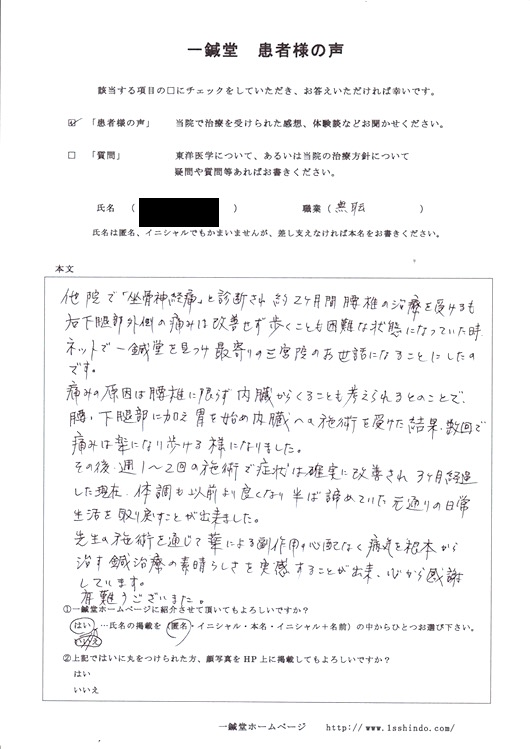 一鍼堂 患者様の声
該当する項目の□にチェックをしていただき、お答えいただければ幸いです。
☑ 「患者様の声」 当院で治療を受けられた感想、体験談などお聞かせください。
□ 「質問」 東洋医学について、あるいは当院の治療方針について
疑問や質問等あればお書きください。
氏名 ( ) 職業 ( 無職 )
氏名は匿名、イニシャルでもかまいませんが、差し支えなければ本名をお書きください。
本文
他院で「坐骨神経痛」と診断され約2ヶ月間腰椎の治療を受けるも
右下腿部外側の痛みは改善せず歩くことも困難な状態になっていた時、
ネットで一鍼堂を見つけ最寄りの三宮院のお世話になることにしたの
です。
痛みの原因は腰椎に限らず内臓からくることも考えられるとのことで、
腰、下腿部に加え胃を始め内臓への施術を受けた結果、数回で
痛みは楽になり歩ける様になりました。
その後、週1〜2回の施術で症状は確実に改善され3ヶ月経過
した現在、体調も以前より良くなり半ば諦めていた元通りの日常
生活を取り戻すことが出来ました。
先生の施術を通じて薬による副作用の心配なく病気を根本から
治す鍼治療の素晴らしさを実感することが出来、心から感謝
しています。
有難うございました。
①一鍼堂ホームページに紹介させて頂いてもよろしいですか?
はい …氏名の掲載を(匿名・イニシャル・本名・イニシャル+名前)の中からひとつお選び下さい。
いいえ
②上記ではいに丸をつけられた方、顔写真をHP上に掲載してもよろしいですか?
はい
いいえ
一鍼堂ホームページ http://www.1sshindo.com/